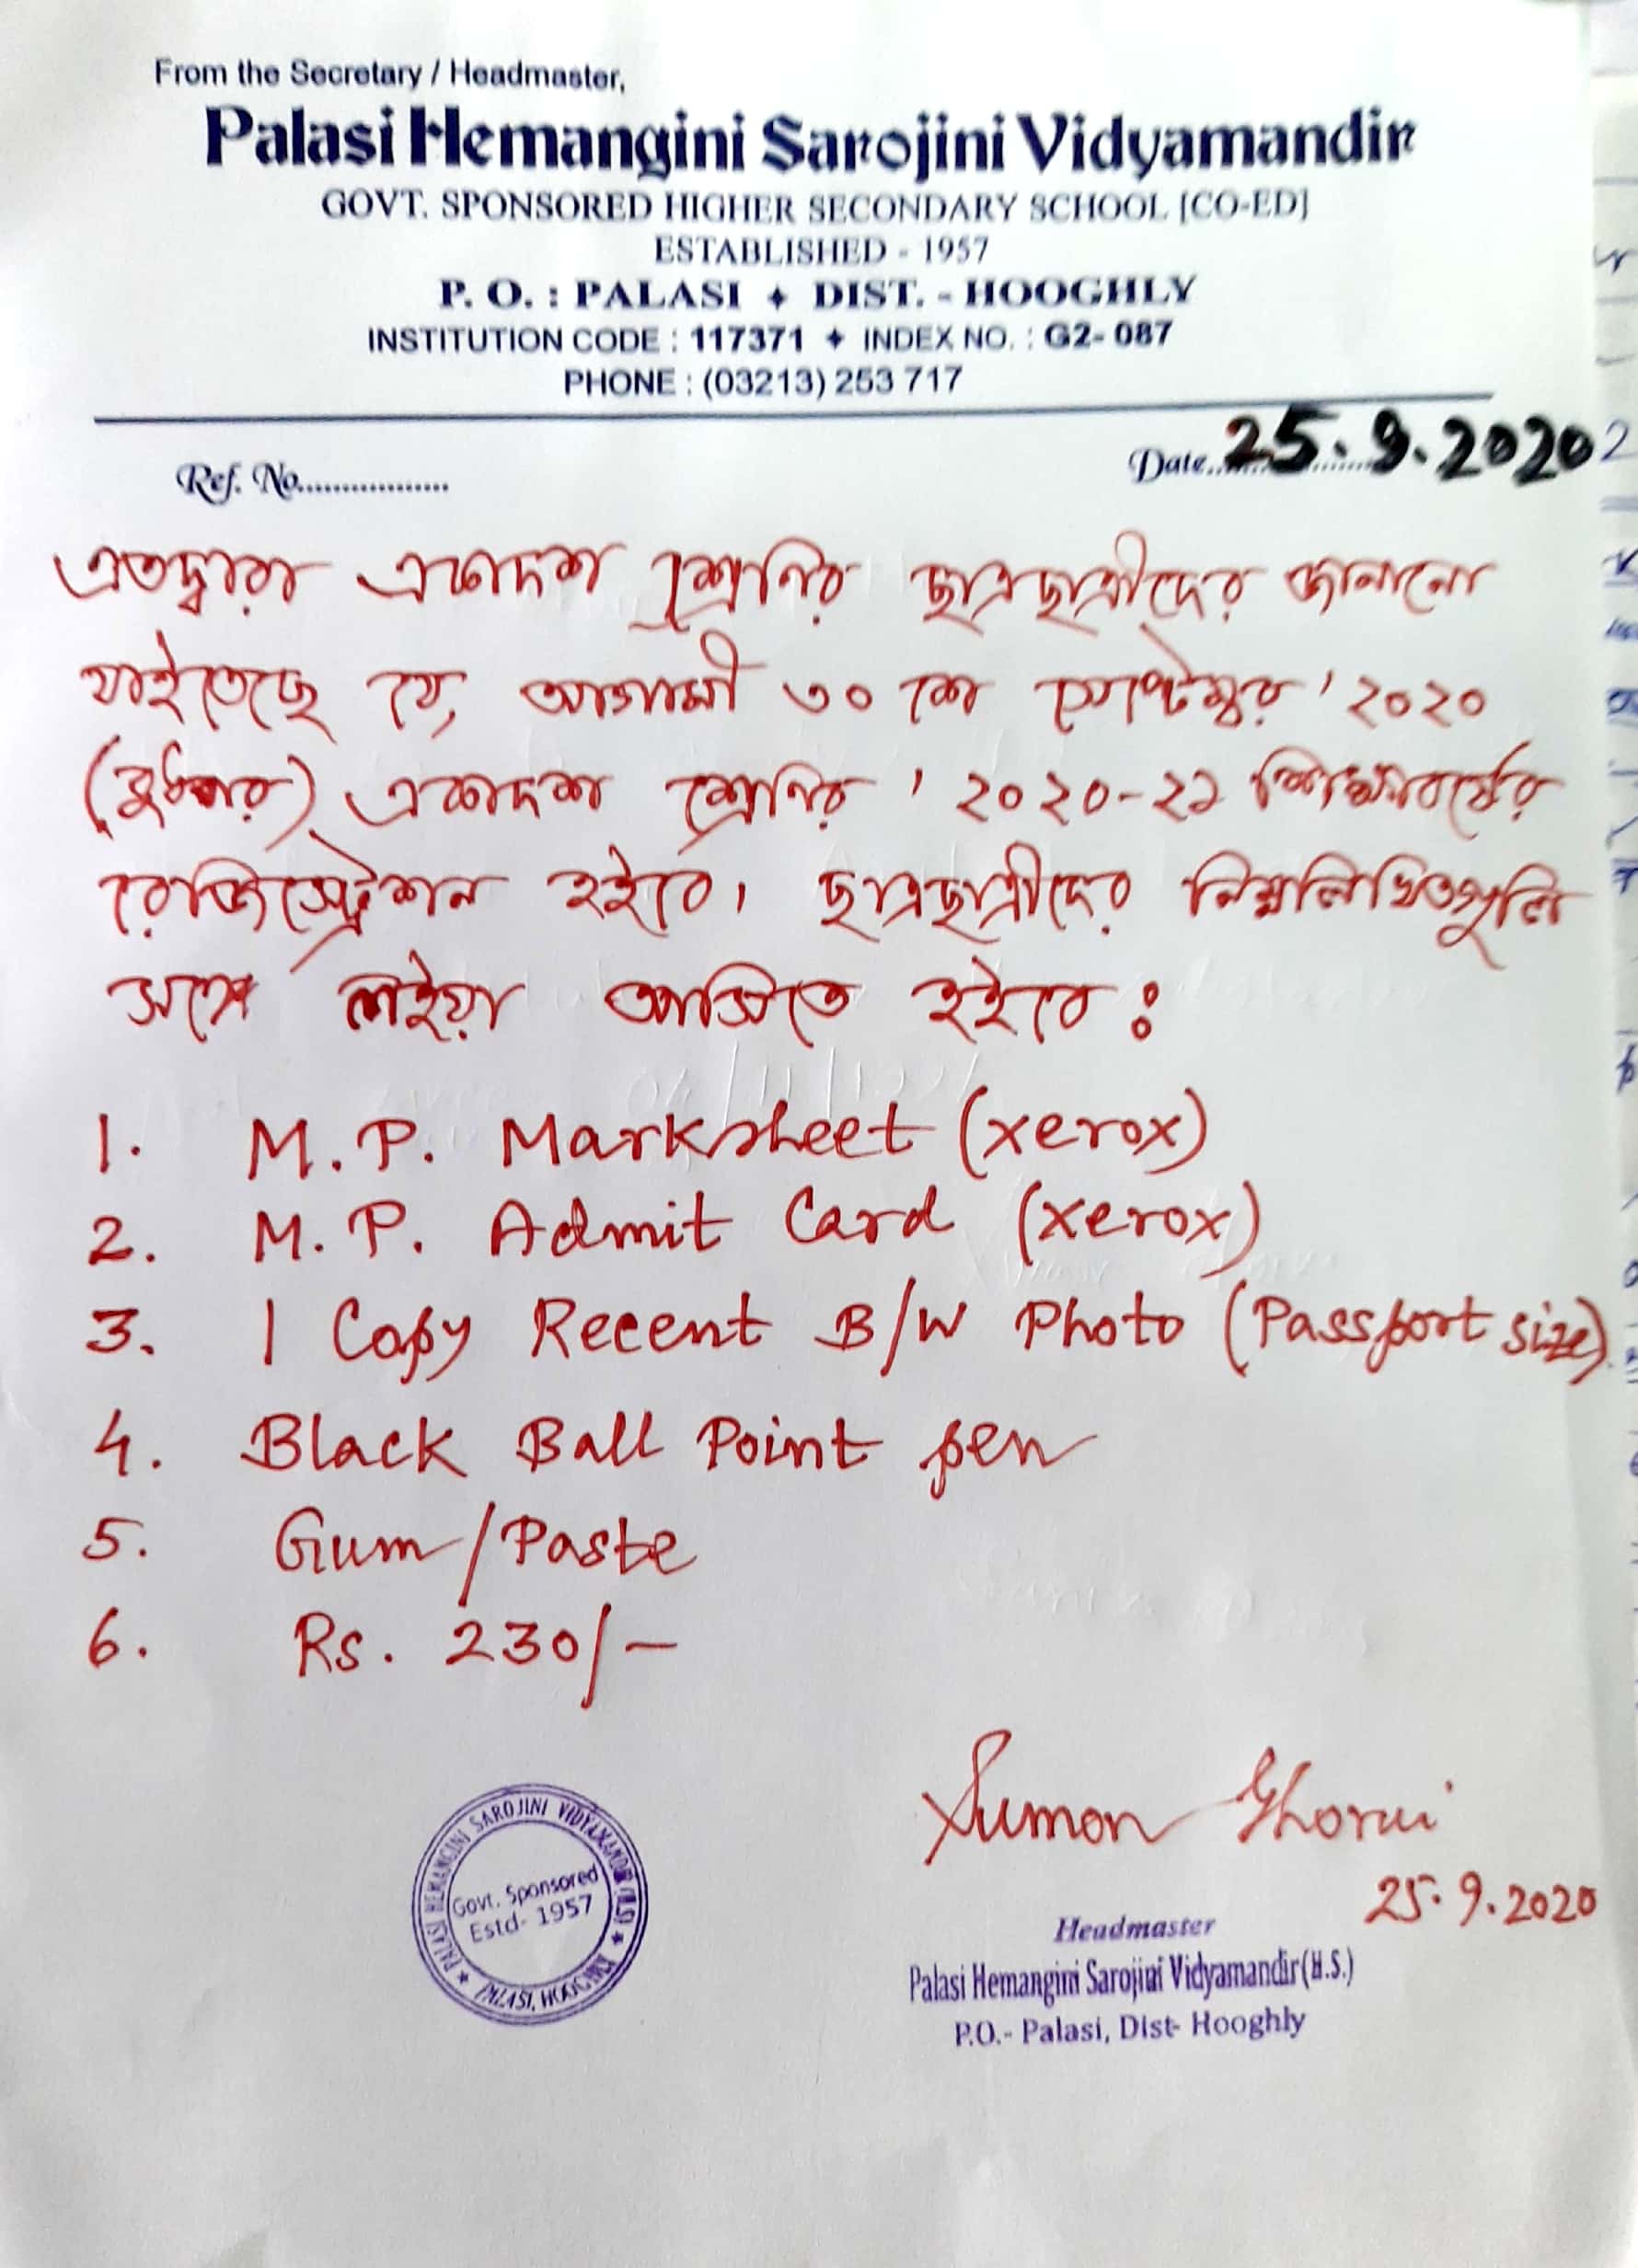 From the Secretary / Headmaster,
Palasi Hemangini Sarojini Vidyamandir
GOVT. SPONSORED HIGHER SECONDARY SCHOOL [CO-ED]
ESTABLISHED - 1957
P. O. : PALASI ✦ DIST. - HOOGHLY
INSTITUTION CODE : 117371 ✦ INDEX NO. : G2- 087
PHONE : (03213) 253 717
Ref. No................. Date.. 25.9.2020
এতদ্বারা একাদশ শ্রেণির ছাত্রছাত্রীদের জানানো
যাইতেছে যে, আগামী ৩০ শে সেপ্টেম্বর '২০২০
(বুধবার) একাদশ শ্রেণির '২০২০-২১ শিক্ষাবর্ষের
রেজিস্ট্রেশন হইবে। ছাত্রছাত্রীদের নিম্নলিখিতগুলি
সঙ্গে লইয়া আসিতে হইবে :
1. M.P. Marksheet (xerox)
2. M.P. Admit Card (xerox)
3. 1 Copy Recent B/W Photo (Passport size).
4. Black Ball Point pen
5. Gum/Paste
6. Rs. 230/-
Sumon Ghorui
25.9.2020
Headmaster
Palasi Hemangini Sarojini Vidyamandir(H.S.)
P.O.- Palasi, Dist- Hooghly
PALASI HEMANGINI SAROJINI VIDYAMANDIR (H.S) ★ PALASI, HOOGHLY ★
Govt. Sponsored
Estd- 1957